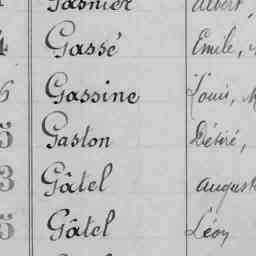 Gasnier Albert,
4 Gassé Emile,
6 Gassine Louis,
5 Gaston Désiré,
3 Gâtel August
5 Gâtel Léon